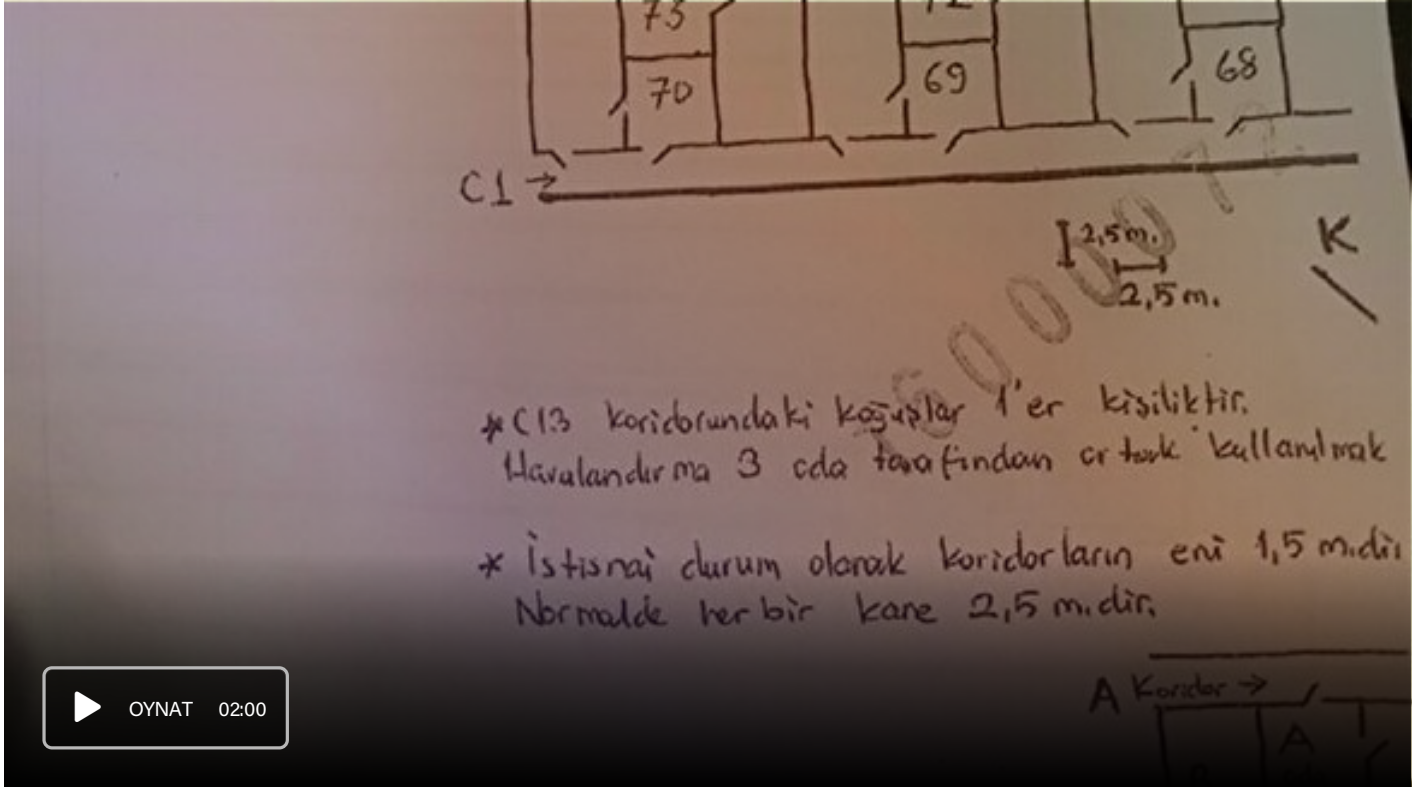 73
70
69
68
C1 →
2,5 m.
K
2,5 m.
* C13 koridorundaki koğuşlar 1'er kişiliktir.
Havalandırma 3 oda tarafından ortak kullanılmak
* İstisnai durum olarak koridorların eni 1,5 m.dir
Normalde her bir kare 2,5 m.dir.
A Koridor →
A
OYNAT 02:00